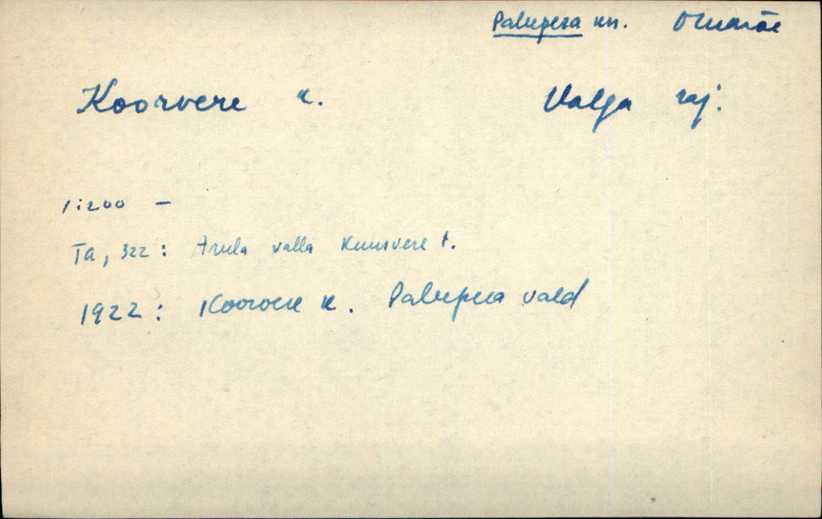 Palupera kn. Otepää
Koorvere k. Valga raj.
1:200 —
Ta, 322: Arula valla Kuusvere t.
1922: Koorvere k. Palupera vald